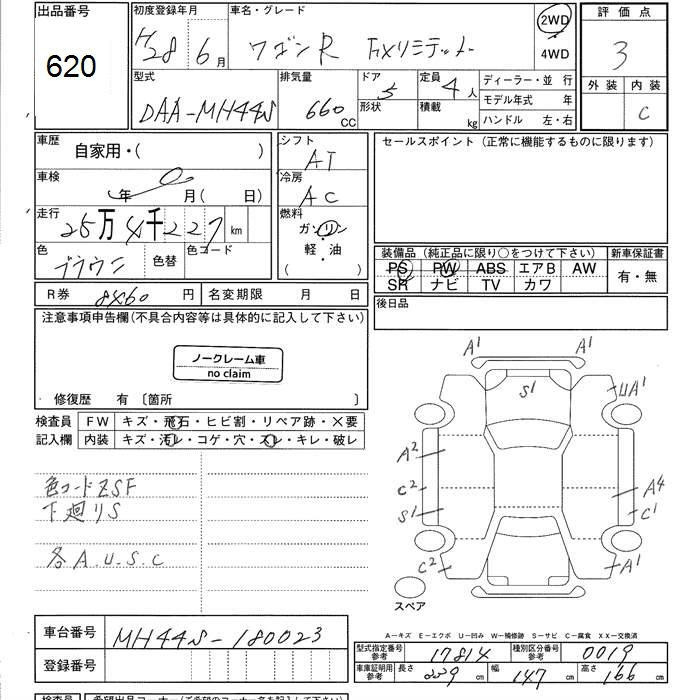 出品番号
620
初度登録年月
H28 6月
車名・グレード
ワゴンR FXリミテッド
2WD
4WD
評価点
3
外装 内装
C
型式
DAA-MH44S
排気量
660 CC
ドア
5
形状
定員
4人
積載
kg
ディーラー・並 行
モデル年式 年
ハンドル 左・右
車歴
自家用・( )
車検
年 月( 日)
走行
25万4千227 km
色
ブラウン
色替
色コード
R券 8460 円
名変期限 月 日
シフト
AT
冷房
AC
燃料
ガソリン
軽・油
( )
セールスポイント(正常に機能するものに限ります)
装備品(純正品に限り○をつけて下さい)
PS PW ABS エアB AW
SR ナビ TV カワ
新車保証書
有・無
後日品
注意事項申告欄(不具合内容等は具体的に記入して下さい)
ノークレーム車
no claim
修復歴 有〔箇所 〕
検査員
記入欄
FW キズ・飛石・ヒビ割・リペア跡・×要
内装 キズ・汚レ・コゲ・穴・スレ・キレ・破レ
色コードZSF
下廻りS
各A.U.S.C
A1
A1
S1
UA1
A2
C2
S1
A4
C1
C2
A1
スペア
A−キズ E−エクボ U−凹み W−補修跡 S−サビ C−腐食 XX−交換済
車台番号
MH44S-180023
登録番号
型式指定番号
参考
17814
種別区分番号
参考
0019
車庫証明用
参考
長さ 339 cm 幅 147 cm 高さ 166 cm
検査員
希望出品コーナー(ご希望のコーナー名を記入下さい)